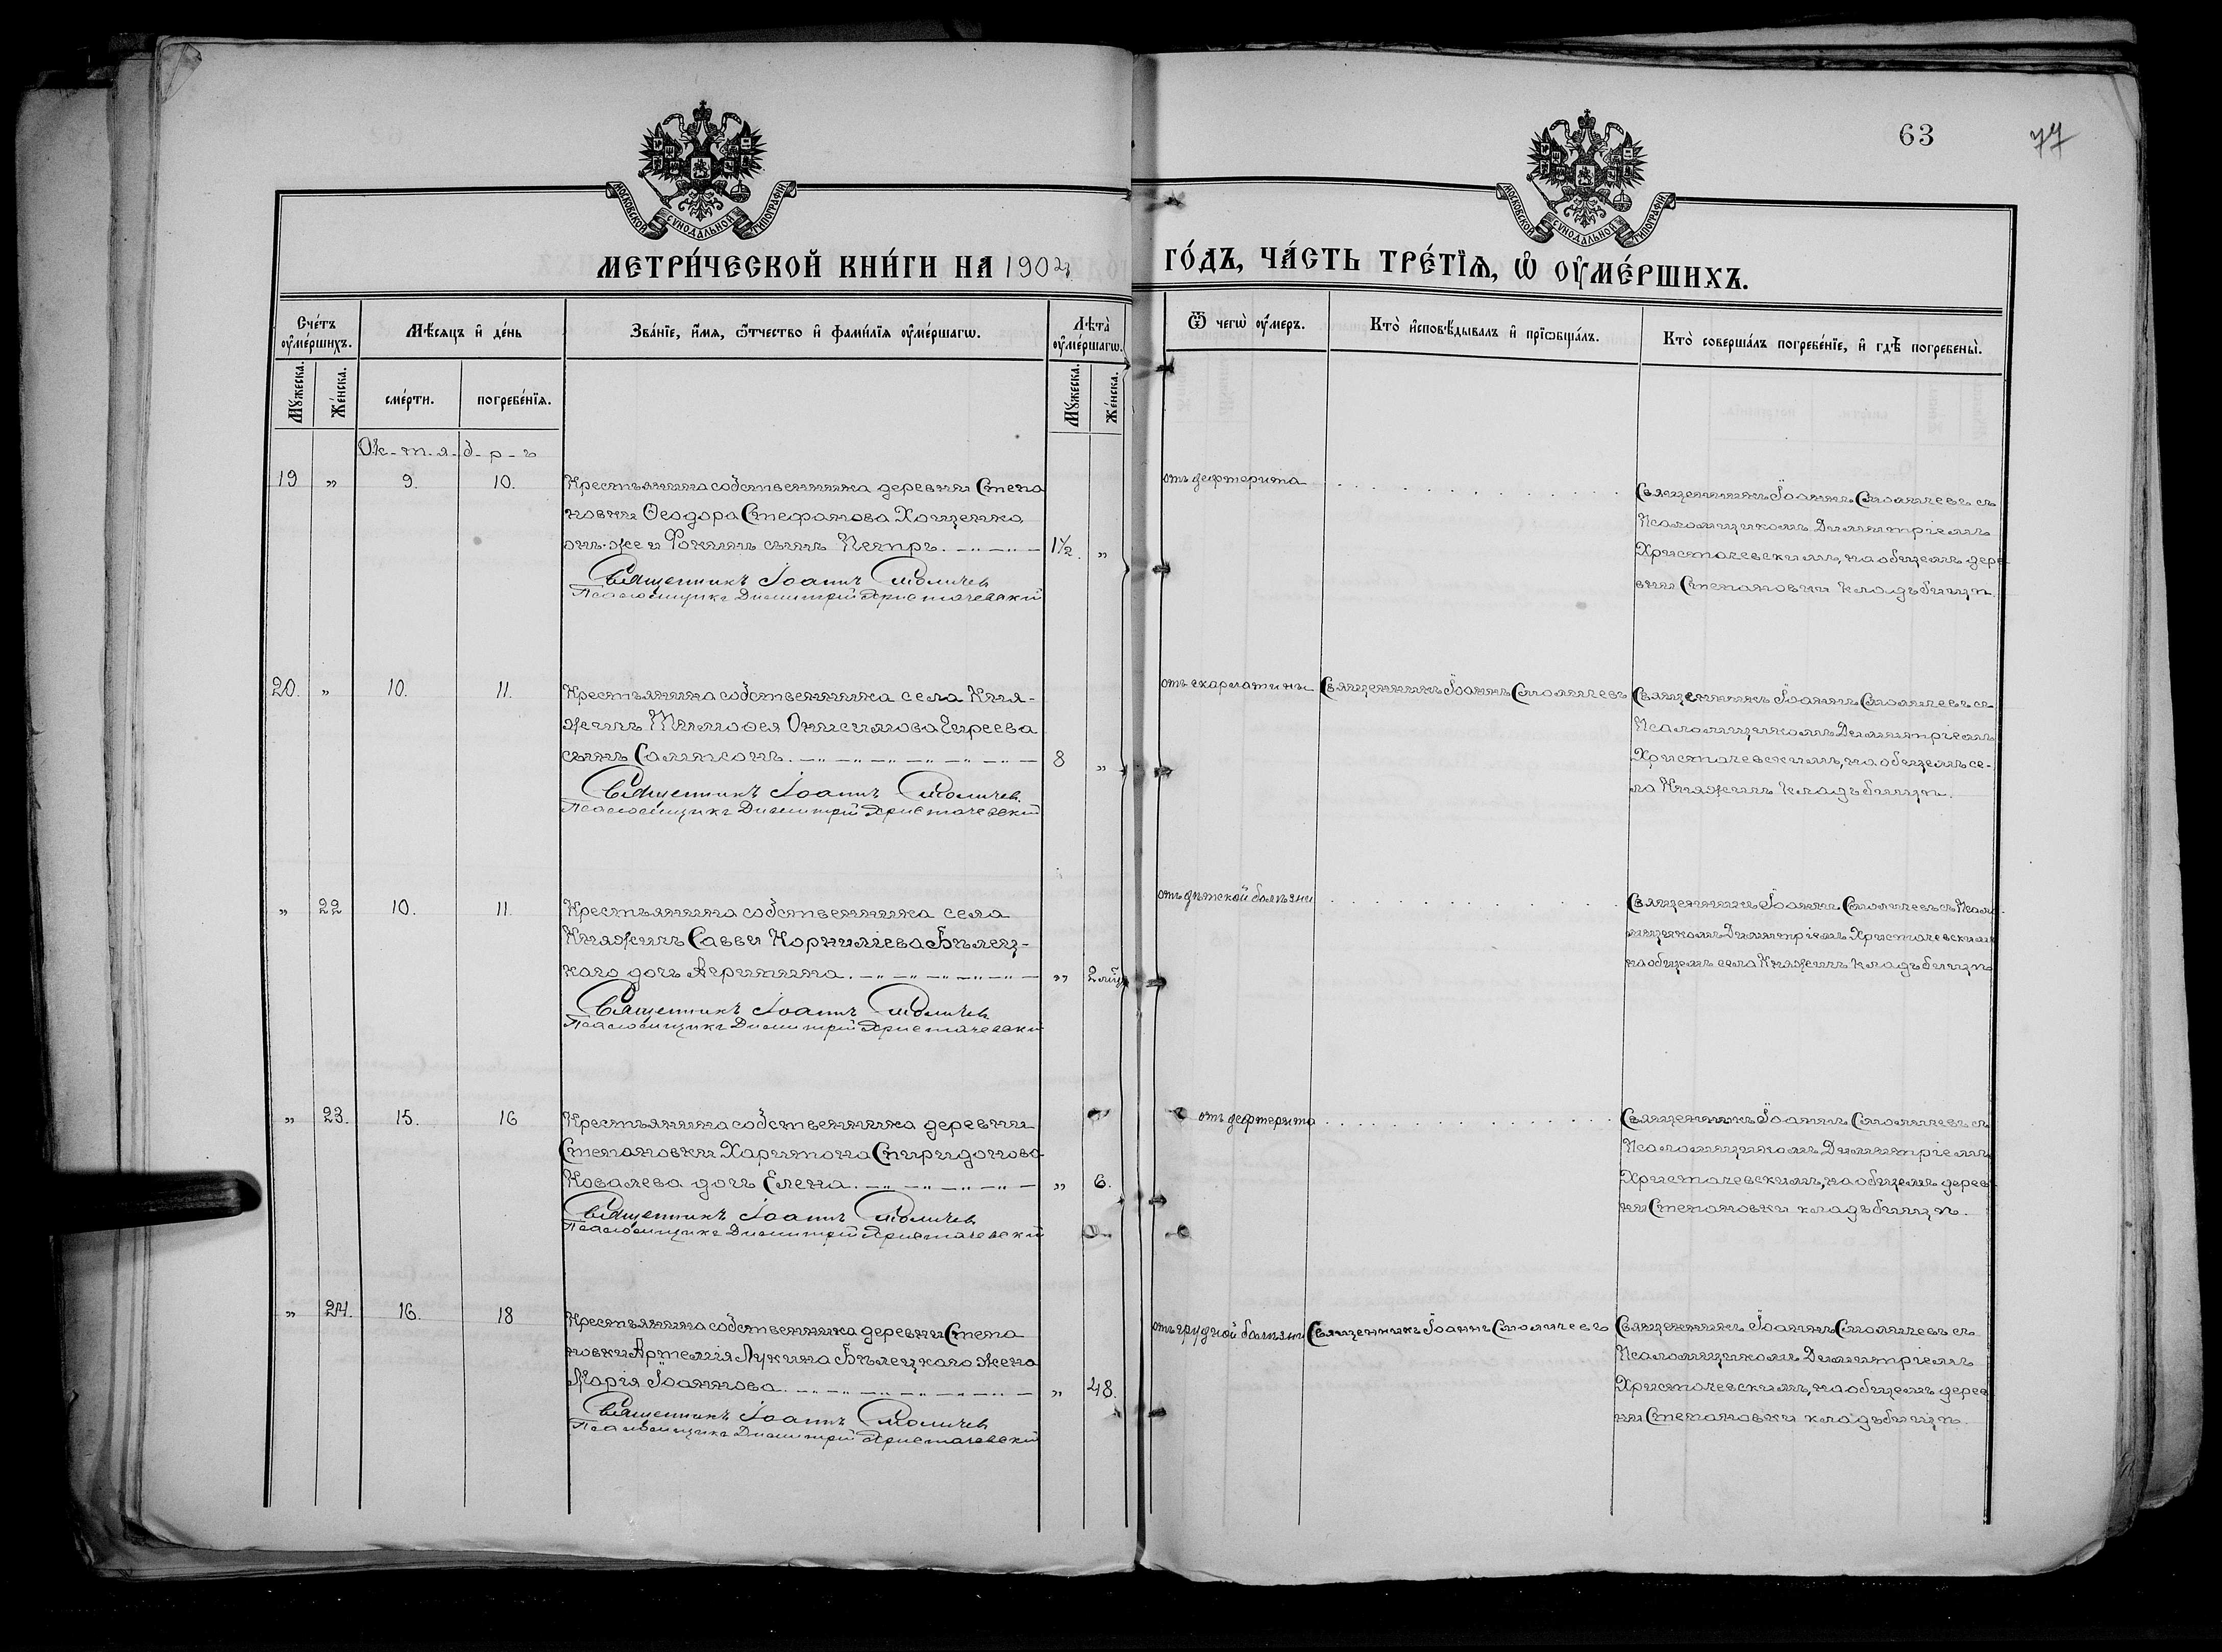 63
77
МОСКОВСКОЙ СѴНОДАЛЬНОЙ ТИПОГРАФІИ
МОСКОВСКОЙ СѴНОДАЛЬНОЙ ТИПОГРАФІИ
МЕТРИ́ЧЕСКОЙ КНИ́ГИ НА 1902 ГО́ДЪ, ЧА́СТЬ ТРЕ́ТІѦ, Ѡ҆ ОУ҆МЕ́РШИХЪ.
Сче́тъ оу҆ме́ршихъ.
Мѣ́сяцъ и҆ де́нь
Зва́нїе, и҆́мя, ѻ҆́тчество и҆ фами́лїя оу҆ме́ршагѡ.
Лѣта̀ оу҆ме́ршагѡ.
Ѿ чегѡ̀ оу҆́меръ.
Кто̀ и҆сповѣ́дывалъ и҆ прїѡбща́лъ.
Кто̀ соверша́лъ погребе́нїе, и҆ гдѣ̀ погребены̀.
Му́жеска. Же́нска. сме́рти. погребе́нїя. Му́жеска. Же́нска.
Ок-т-я-б-р-ь
19 „ 9. 10. Крестьянина собственника деревни Степа
новки Ѳеодора Стефанова Хощенко
онъ-же и Фокинъ сынъ Петръ. 1½. „
Священникъ Іоаннъ Смоличев
Псаломщикъ Димитрій Христачевскій
отъ дефтерита
Священникъ Іоаннъ Смоличевъ съ
Псаломщикомъ Димитріемъ
Христачевскимъ, на общемъ дере-
вни Степановки кладбищѣ.
20. „ 10. 11. Крестьянина собственника села Кня-
жичъ Тимоѳея Онисимова Гиреева
сынъ Сампсонъ. 8 „
Священникъ Іоаннъ Смоличев.
Псаломщикъ Димитрій Христачевскій
отъ скарлатины Священникъ Іоаннъ Смоличевъ
Священникъ Іоаннъ Смоличевъ съ
Псаломщикомъ Димитріемъ
Христачевскимъ, на общемъ се-
ла Княжичъ кладбищѣ.
„ 22 10. 11. Крестьянина собственника села
Княжичъ Саввы Корниліева Бѣлец-
каго дочь „
Священникъ Іоаннъ Смоличев
Псаломщикъ Димитрій Христачевскій
отъ дѣтской болѣзни
Священникъ Іоаннъ Смоличевъ съ Псало-
мщикомъ Димитріемъ Христачевскимъ
на общемъ села Княжичъ кладбищѣ
„ 23. 15. 16 Крестьянина собственника деревни
Степановки Харитона Спиридонова
Ковалева дочь Елена. „ 6.
Священникъ Іоаннъ Смоличев
Псаломщикъ Димитрій Христачевскій
отъ дефтерита
Священникъ Іоаннъ Смоличевъ съ
Псаломщикомъ Димитріемъ
Христачевскимъ, на общемъ дерев-
ни Степановки кладбищѣ.
„ 24. 16. 18 Крестьянина собственника деревни Степа
новки Артемія Лукина Бѣлецкаго жена
Марія Іоаннова. „ 48.
Священникъ Іоаннъ Смоличев
Псаломщикъ Димитрій Христачевскій
отъ грудной болѣзни Священникъ Іоаннъ Смоличевъ
Священникъ Іоаннъ Смоличевъ съ
Псаломщикомъ Димитріемъ
Христачевскимъ, на общемъ дерев
ни Степановки кладбищѣ.